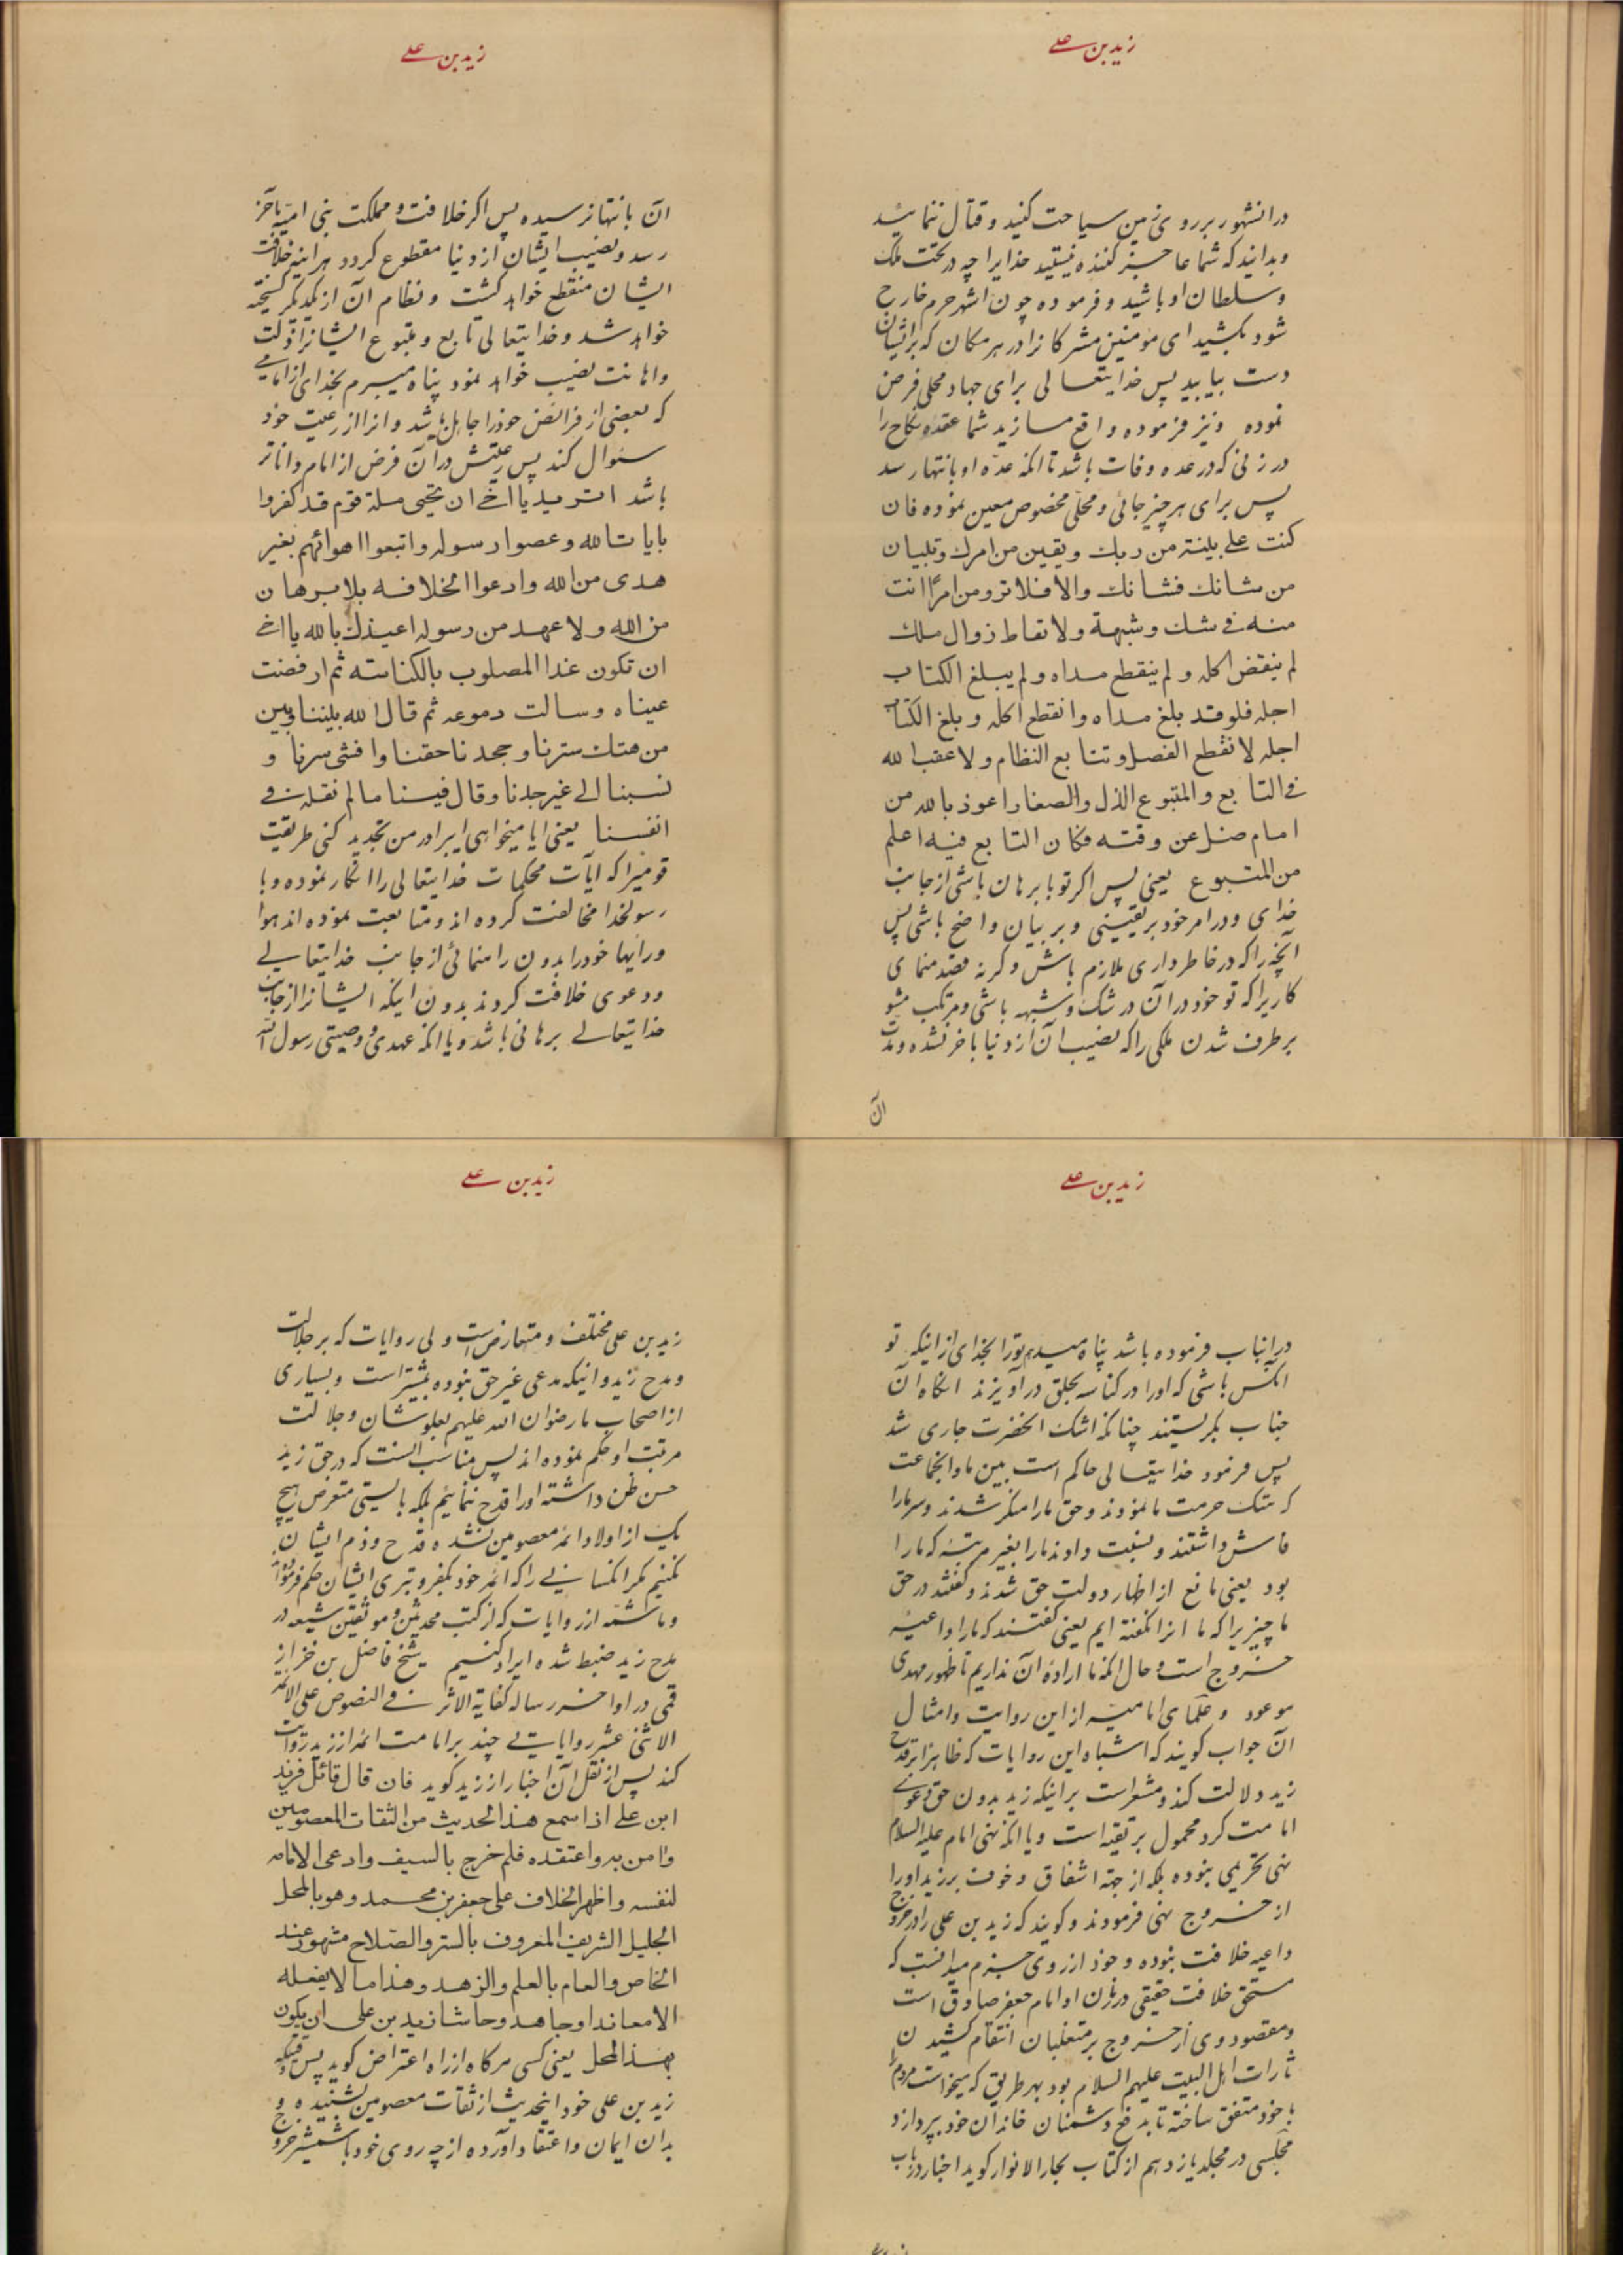 زید بن علے
در انشهور بر روی زمین سیاحت کنید و قتال ننمائید
و بدانید که شما عاجز کننده نیستید خدایرا چه در تحت ملک
و سلطان او باشید و فرموده چون اشهر حرم خارج
شود بکشید ای مؤمنین مشرکانرا در هر مکان که بر ایشان
دست بیابید پس خدایتعالی برای جهاد محلی فرض
نموده و نیز فرموده واقع مسازید شما عقده نکاح را
در زنی که در عده وفات باشد تا انکه عده او بانتها رسد
پس برای هر چیز جائی و محلی مخصوص معین نموده فان
کنت علے بینة من ربك و یقین من امرك و تبیان
من شانك فشانك والا فلا ترومن امرًا انت
منه فے شك و شبهة ولا تعاط زوال ملك
لم ینقض اکله و لم ینقطع مداه و لم یبلغ الکتاب
اجله فلو قد بلغ مداه وانقطع اکله و بلغ الکتاب
اجله لانقطع الفصل و تتابع النظام و لاعقب الله
فے التابع و المتبوع الذل والصغار اعوذ بالله من
امام ضل عن وقته فکان التابع فیه اعلم
من المتبوع یعنی پس اکر تو با برهان باشی از جانب
خدای و در امر خود بر یقینی و بر بیان واضح باشی پس
آنچه را که در خاطر داری ملازم باش و کرنه قصد منمای
کاریرا که تو خود در آن در شک و شبهه باشی و مرتکب مشو
بر طرف شدن ملکی را که نصیب آن از دنیا باخر نشده و مدت
آن
زید بن علے
آن بانتها نرسیده پس اکر خلافت و مملکت بنی امیه بآخر
رسد و نصیب ایشان از دنیا مقطوع کردد هر اینه خلافت
ایشان منقطع خواهد کشت و نظام آن از یکدیکر کسیخته
خواهد شد و خدایتعالی تابع و متبوع ایشانرا ذلت
و اهانت نصیب خواهد نمود پناه میبرم بخدای از امامے
که بعضی از فرائض خود را جاهل باشد و انرا از رعیت خود
سئوال کند پس رعیتش در آن فرض از امام داناتر
باشد اترید یا اخے ان تحیی ملة قوم قد کفروا
بایات الله و عصوا رسوله واتبعوا اهوائهم بغیر
هدی من الله وادعوا الخلافه بلا برهان
من الله ولا عهد من رسوله اعیذك بالله یا اخے
ان تکون غدا المصلوب بالکناسته ثم ارفضت
عیناه وسالت دموعه ثم قال الله بیننا و بین
من هتك سترنا و جحدنا حقنا وا فشی سرنا و
نسبنا الے غیر جدنا و قال فینا ما لم نقله فے
انفسنا یعنی ایا میخواهی ایبرادر من تجدید کنی طریقت
قومیرا که آیات محکمات خدایتعالی را انکار نموده و با
رسولخدا مخالفت کرده اند و متابعت نموده اند هوا
و رایها خود را بدون راهنمائی از جانب خدایتعالے
و دعوی خلافت کردند بدون اینکه ایشانرا از جانب
خدایتعالے برهانی باشد و یا انکه عهدی و وصیتی رسول الله
زید بن علے
در اینباب فرموده باشد پناه میدهم تو را بخدای از اینکه تو
آنکس باشی که او را در کناسه بحلق درآویزند انکاه آن
جناب بکریستند چنانکه اشک انحضرت جاری شد
پس فرمود خدایتعالی حاکم است بین ما و انجماعت
که هتک حرمت ما نمودند و حق ما را منکر شدند و سر ما را
فاش داشتند و نسبت دادند ما را بغیر مرتبه که ما را
بود یعنی مانع از اظهار دولت حق شدند و کفتند در حق
ما چیزیرا که ما انرا نکفته ایم یعنی کفتند که ما را داعیه
خروج است و حال انکه ما اراده آن نداریم تا ظهور مهدی
موعود و علمای امامیه از این روایت و امثال
آن جواب کویند که اشباه این روایات که ظاهرا بر قدح
زید دلالت کند و مشعر است بر اینکه زید بدون حق دعوی
امامت کرد محمول بر تقیه است و یا انکه نهی امام علیه السلام
نهی تحریمی نبوده بلکه از جهة اشفاق و خوف بر زید او را
از خروج نهی فرمودند و کویند که زید بن علی را در خروج
داعیه خلافت نبوده و خود از روی جزم میدانست که
مستحق خلافت حقیقی در زمان او امام جعفر صادق است
و مقصود وی از خروج بر متغلبان انتقام کشیدن
ثارات اهل البیت علیهم السلام بود بهر طریق که میخواست مردم را
با خود متفق ساخته تا بدفع دشمنان خاندان خود بپردازد
مجلسی در مجلد یازدهم از کتاب بحار الانوار کوید اخبار در باب
زید بن علے
زید بن علی مختلف و متعارض است ولی روایات که بر جلالت
و مدح زید و اینکه مدعی غیر حق نبوده بیشتر است و بسیاری
از اصحاب ما رضوان الله علیهم بعلو شان و جلالت
مرتبت او حکم نموده اند پس مناسب انست که در حق زید
حسن ظن داشته او را قدح ننمائیم بلکه بایستی متعرض هیچ
یک از اولاد ائمه معصومین نشده قدح و ذم ایشان
نکنیم مکر انکسانے را که ائمه خود بکفر و تبری ایشان حکم فرموده اند
و ما شمه از روایات که از کتب محدثین و موثقین شیعه در
مدح زید ضبط شده ایراد کنیم شیخ فاضل بن خزاز
قمی در اواخر رساله کفایة الاثر فے النصوص علی الائمه
الاثنی عشر روایاتے چند بر امامت ائمه از زید روایت
کند پس از نقل آن اخبار از زید کوید فان قال قائل فزید
ابن علے اذا سمع هذا الحدیث من الثقات المعصومین
وامن به واعتقده فلم خرج بالسیف وادعی الامامه
لنفسه واظهر الخلاف علی جعفر بن محمد وهو بالمحل
الجلیل الشریف المعروف بالستر والصلاح مشهور عند
الخاص والعام بالعلم والزهد وهذا ما لا یفعله
الا معاند او جاحد وحاشا زید بن علی ان یکون
بهذا المحل یعنی کسی هرکاه از راه اعتراض کوید پس وقتیکه
زید بن علی خود اینحدیث از ثقات معصومین بشنیده و
بدان ایمان و اعتقاد آورده از چه روی خود با شمشیر خروج